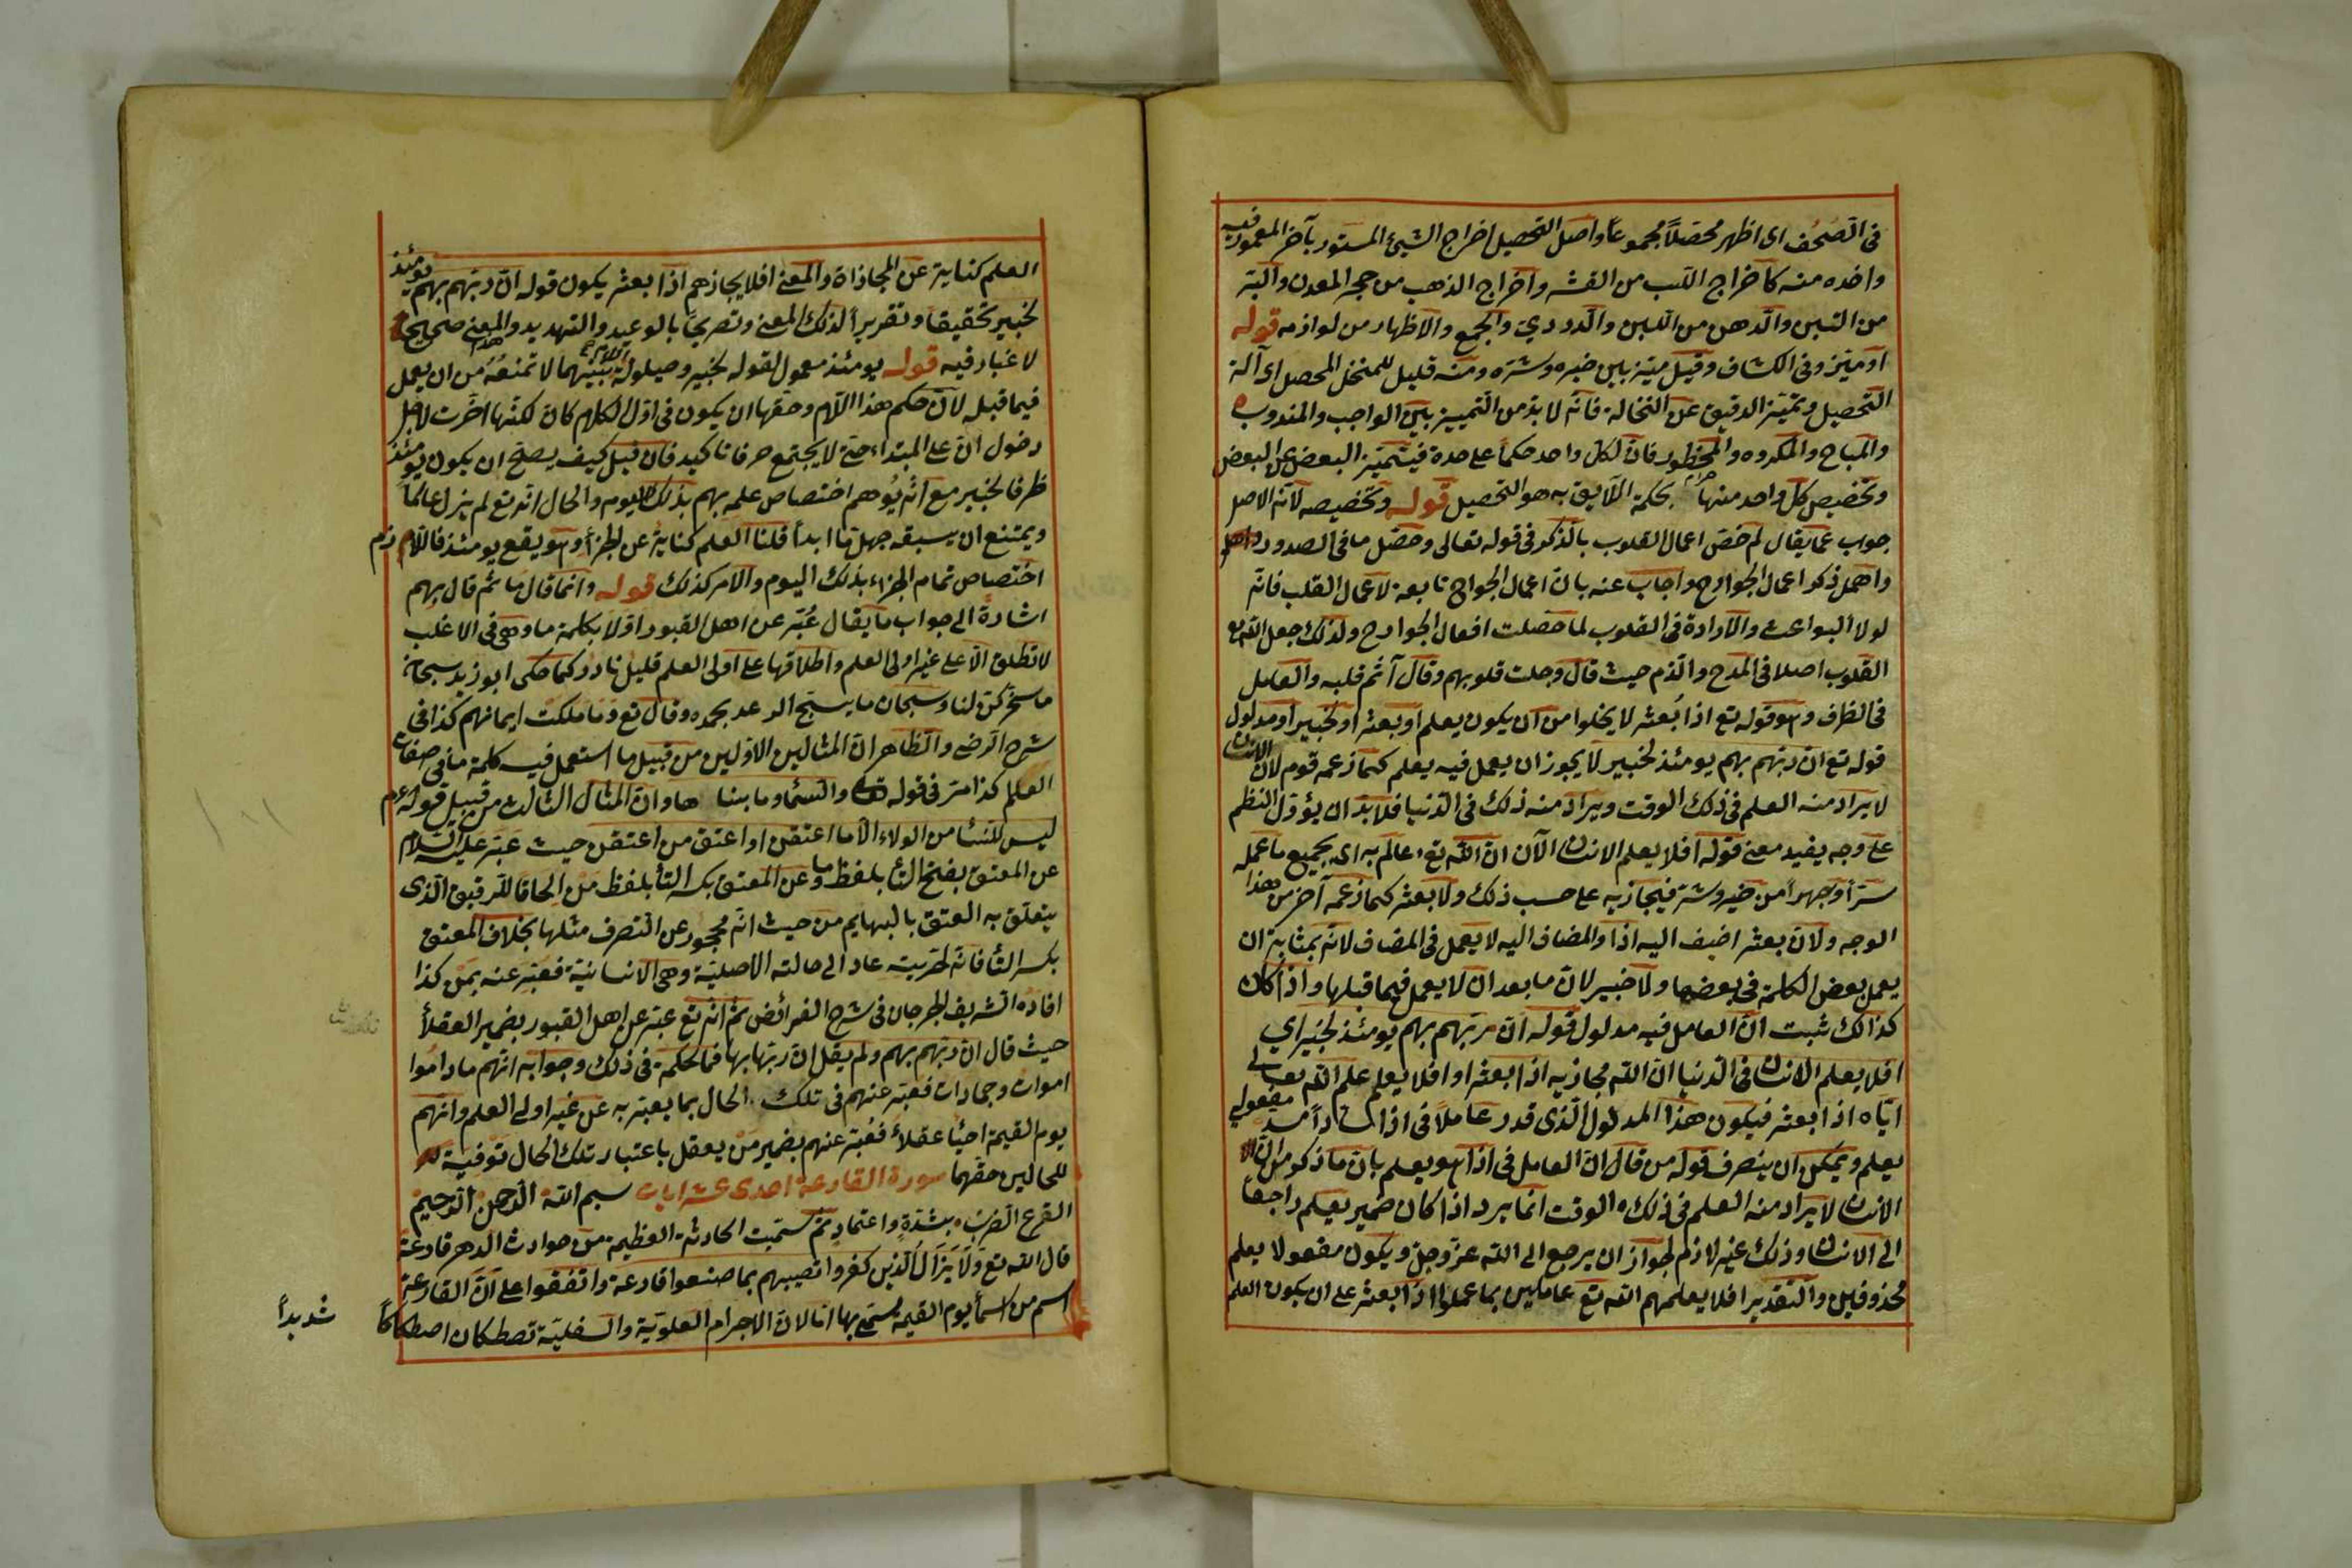 في الصحف اى اظهر محصّلاً مجموعاً واصل التحصيل اخراج الشيئ المستور بآخر المغمور فيه
واخذه منه كاخراج اللب من القشر واخراج الذهب من حجر المعدن والبّر
من التبن والدهن من اللبن والدردي والجمع والاظهار من لوازمه قوله
او ميّز وفى الكشاف وقيل ميّز بين خيره وشرّه ومنه قيل للمنخل المحصل اى آلة
التحصيل وتميّز الدقيق عن النخالة فانّه لا بدّ من التمييز بين الواجب والمندوب
والمباح والمكروه والمحظور فانّ لكل واحد حكماً على حدة فيتميّز البعض عن البعض
وتخصيص كل واحد منها بحكمه اللايق به هو التحصيل قوله وتخصيصه لانّه الاصل
جواب عمّا يقال لم خصّ اعمال القلوب بالذكر فى قوله تعالى وحصّل ما فى الصدور
واهمل ذكر اعمال الجوارح واجاب عنه بانّ اعمال الجوارح تابعة لاعمال القلب فانّه
لولا البواعث والارادة فى القلوب لما حصلت افعال الجوارح ولذلك جعل الله تع
القلوب اصلا فى المدح والذم حيث قال وجلت قلوبهم وقال آثم قلبه والعامل
فى الظرف وهو قوله تع اذا بُعثر لا يخلوا من ان يكون يعلم او بعثر او لخبير او مدلول
قوله تع ان ربهم بهم يومئذ لخبير لا يجوز ان يعمل فيه يعلم كما زعمه قوم لان الانسان
لا يراد منه العلم فى ذلك الوقت ويراد منه ذلك فى الدنيا فلا بدّ ان يؤوّل النظم
على وجه يفيد معنى قوله افلا يعلم الانسان الآن انّ الله تع عالم به اى بجميع ما عمله
سرّاً وجهراً من خير وشرّ فيجازيه على حسب ذلك ولا بعثر كما زعمه آخر من هذا
الوجه ولانّ بعثر اضيف اليه اذا والمضاف اليه لا يعمل فى المضاف لانه بمثابة ان
يعمل بعض الكلمة فى بعضها ولا خبير لان ما بعد انّ لا يعمل فيما قبلها واذا كان
كذالك ثبت انّ العامل فيه مدلول قوله انّ ربّهم بهم يومئذ لخبير اي
افلا يعلم الانسان فى الدنيا انّ الله مجازيه اذا بعثر او افلا يعلم علم الله تعالى
ايّاه اذا بعثر فيكون هذا المدلول الّذى قدر عاملاً فى اذا سادّاً مسد مفعولي
يعلم ويمكن ان ينصرف قوله من قال انّ العامل فى اذا هو يعلم بانّ ما ذكر من انّ
الانسان لا يراد منه العلم فى ذلك الوقت انّما يرد اذا كان ضمير يعلم راجعاً
الى الانسان وذلك غير لازم لجواز ان يرجع الى الله عزّ وجلّ ويكون مفعولا يعلم
محذوفين والتقدير افلا يعلمهم الله تع عاملين بما عملوا اذا بعثر على ان يكون العلم
العلم كناية عن المجازاة والمعنى افلا يجازهم اذا بعثر يكون قوله انّ ربّهم بهم يومئذ
لخبير تحقيقاً وتقريراً لذلك المعنى وتصريحاً بالوعيد والتهديد والمعنى صحيح
لا غبار فيه قوله يومئذ معمول لقوله لخبير وحيلولة اللام بينهما لا تمنعه من ان يعمل
فيما قبله لانّ حكم هذا اللام وحقّها ان يكون فى اوّل الكلام كان لكنّها اخّرت لاجل
دخول انّ على المبتداء حتّى لا يجتمع حرفا تاكيد فان قيل كيف يصلح ان يكون يومئذ
ظرفا لخبير مع انّه يُوهم اختصاص علمه بهم بذلك اليوم والحال انّه تع لم يزل عالماً
ويمتنع ان يسبقه جهل ما ابداً قلنا العلم كناية عن الجزاء وهو يقع يومئذ فاللازم
اختصاص تمام الجزاء بذلك اليوم والامر كذلك قوله وانّما قال ما ثم قال بهم
اشارةً الى جواب ما يقال عُبّر عن اهل القبور اوّلا بكلمة ما وهى فى الاغلب
لا تطلق الّا على غير اولى العلم واطلاقها على اولى العلم قليل نادر كما حكى ابو زيد سبحان
ما سخركنّ لنا وسبحان ما يسبّح الرعد بحمده وقال تع وما ملكت ايمانهم كذا فى
شرح الرضى والظاهر انّ المثالين الاوّلين من قبيل ما استعمل فيه كلمة ما فى صفات
العالم كذا مرّ فى قوله تع والسماء وما بناها وانّ المثال الثالث من قبيل قوله عم
ليس للنساء من الولاء الّا ما اعتقن او اعتق من اعتقن حيث عبّر عليه السلام
عن المعتق بفتح التاء بلفظ ما وعن المعتق بكسر التاء بلفظ من الحاقا للرقيق الّذى
يتعلّق به العتق بالبهايم من حيث انّه محجور عن التصرف مثلها بخلاف المعتق
بكسر التاء فانّه لحريته عاد الى حالته الاصليّة وهى الانسانيّة فعبّر عنه بمن كذا
افاده الشريف الجرجان فى شرح الفرائض ثم انّه تع عبّر عن اهل القبور بضمير العقلاء
حيث قال انّ ربّهم بهم ولم يقل انّ ربّها بها فما الحكمة فى ذلك وجوابه انّهم ما داموا
اموات وجمادات فعبّر عنهم فى تلك الحال بما يعبّر به عن غير اولى العلم وانّهم
يوم القيمة احياء عقلاء فعُبّر عنهم بضمير من يعقل باعتبار تلك الحال توفية
للحالين حقّهما سورة القارعة احدى عشر ايات بسم الله الرحمن الرحيم
القرع الضرب بشدّةٍ واعتمادٍ ثمّ سمّيت الحادثة العظيمة من حوادث الدهر قارعة
قال الله تع ولا يزال الّذين كفروا تصيبهم بما صنعوا قارعة واتّفقوا على انّ القارعة
اسم من اسماء يوم القيمة يسمّى بها امّا لانّ الاجرام العلويّة والسفليّة تصطكان اصطكاكاً
شديداً